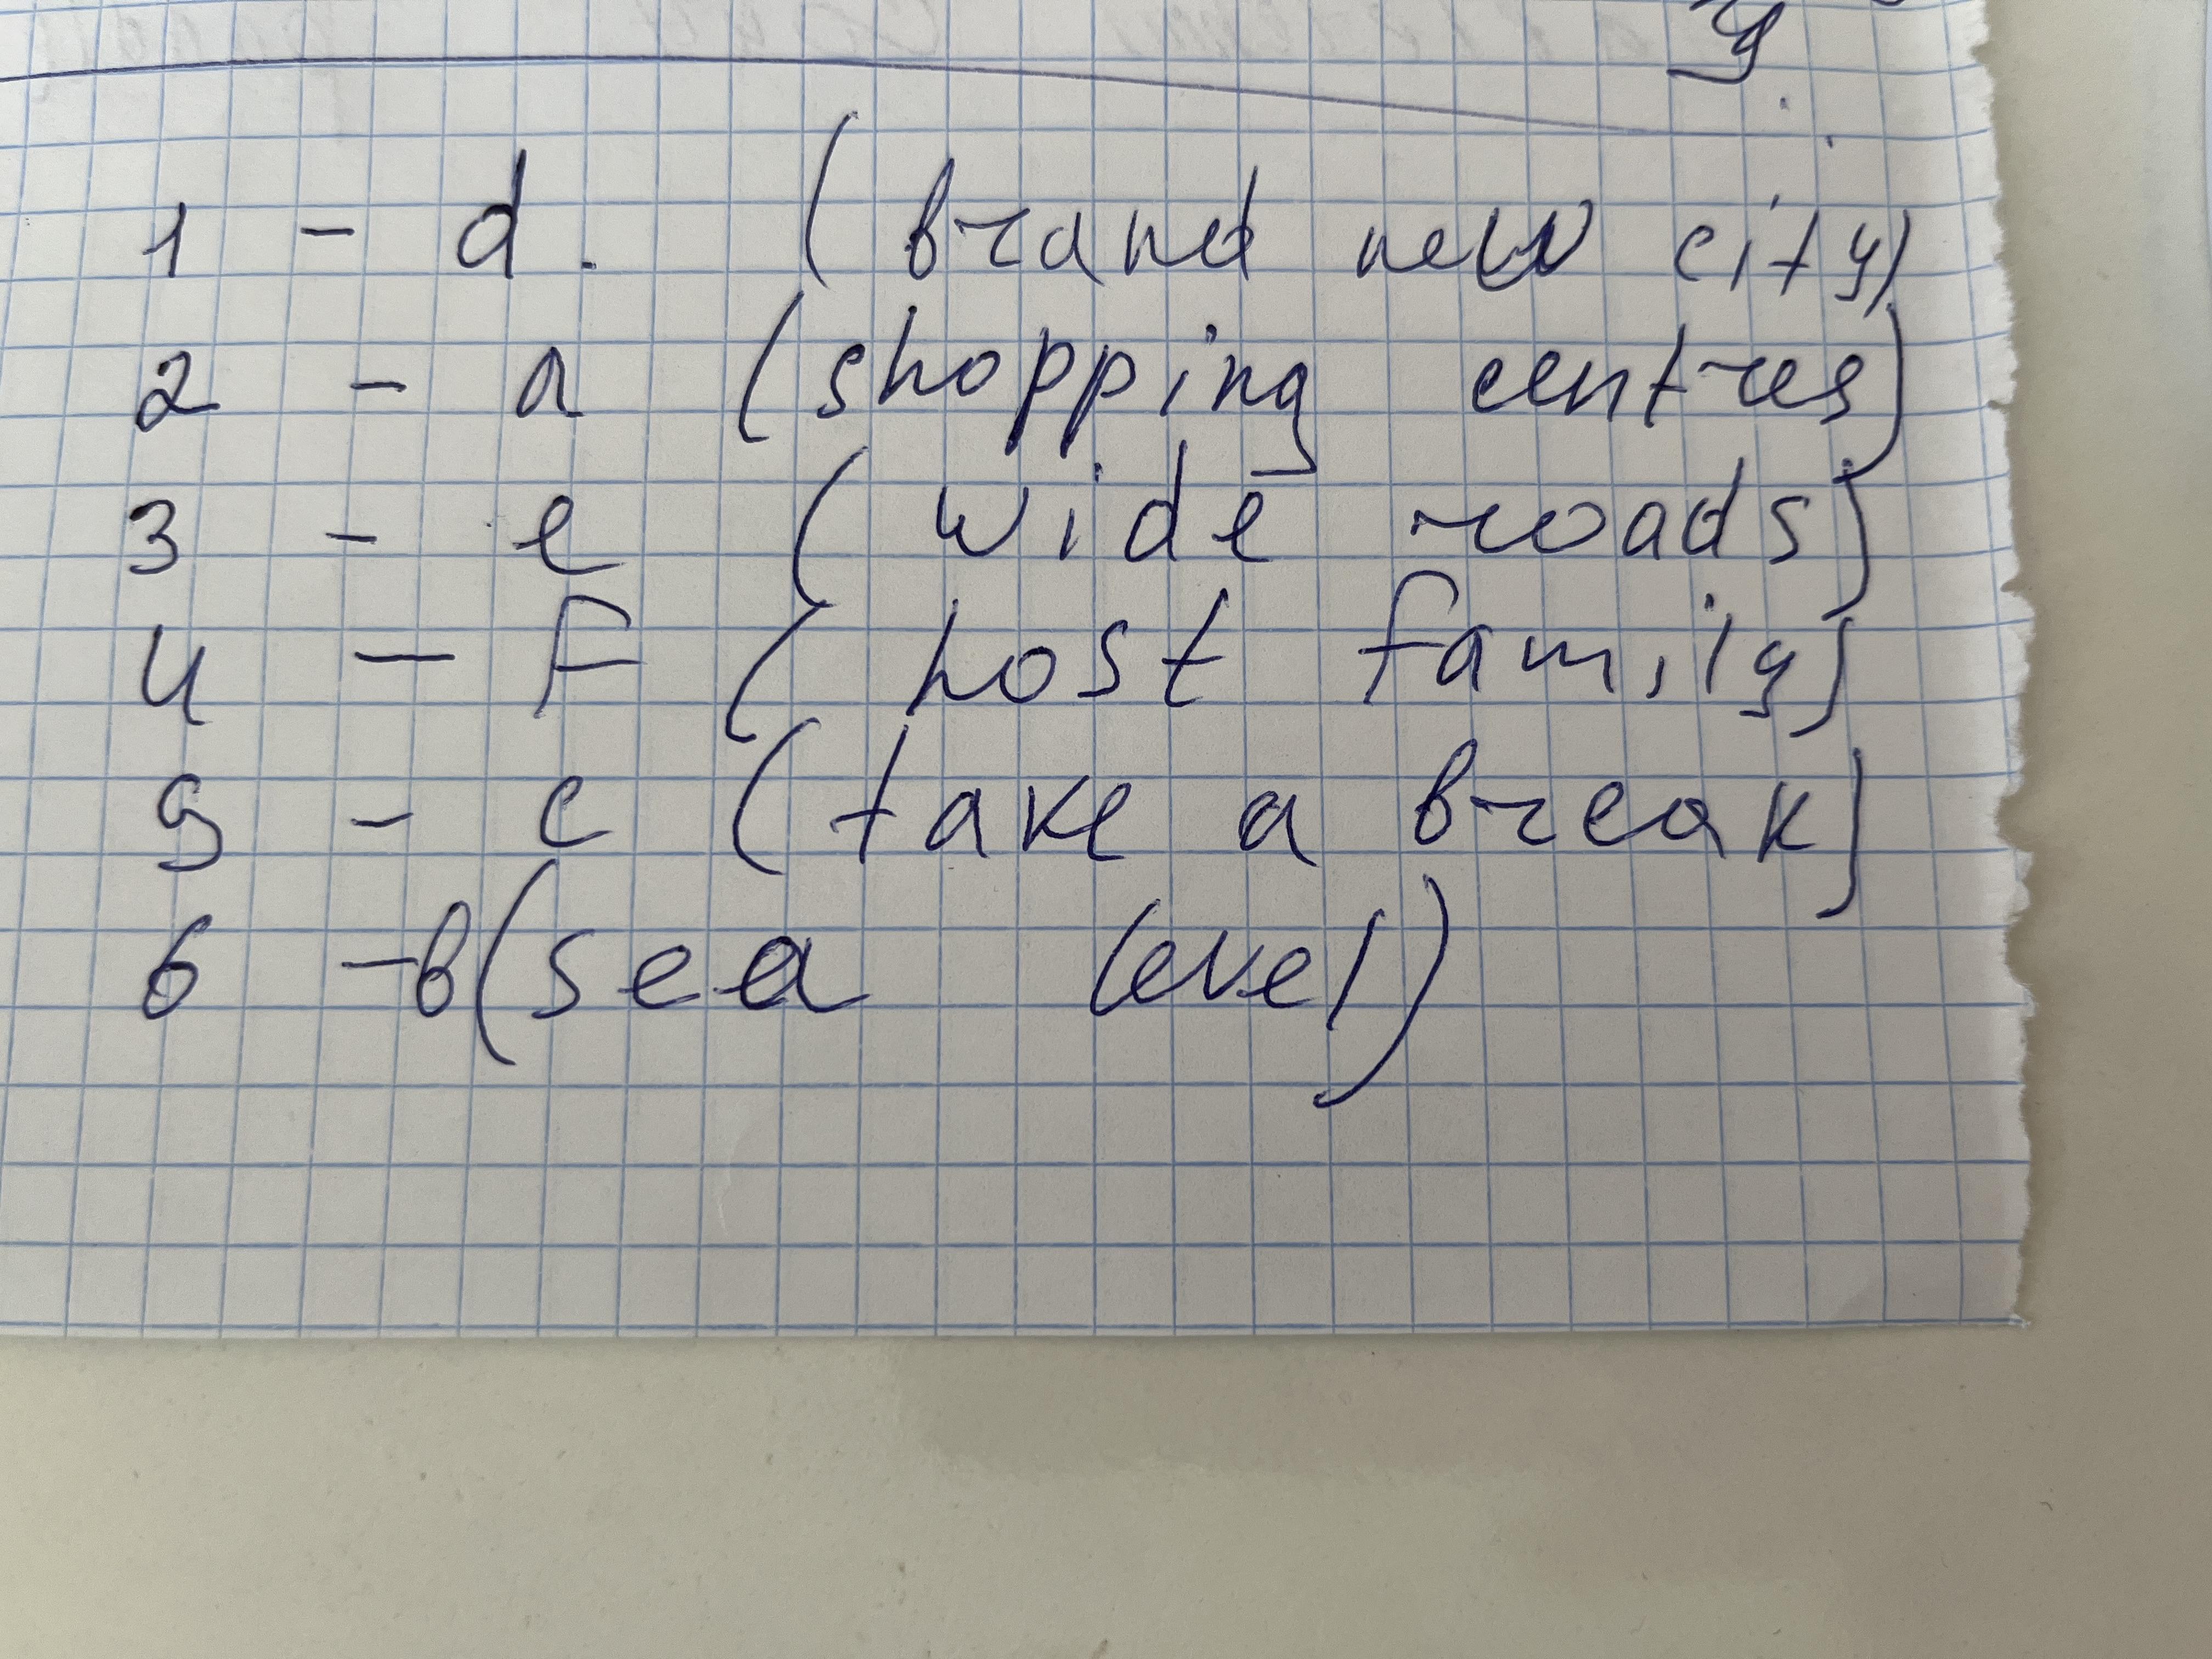 1 - d. (brand new city)
2 - a (shopping centres)
3 - e (wide roads)
4 - F (host family)
5 - c (take a break)
6 - b (sea level)